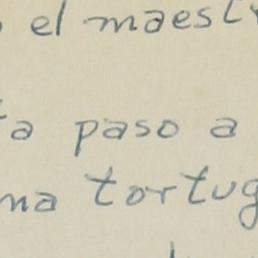 el maest
a paso a
ma tortug